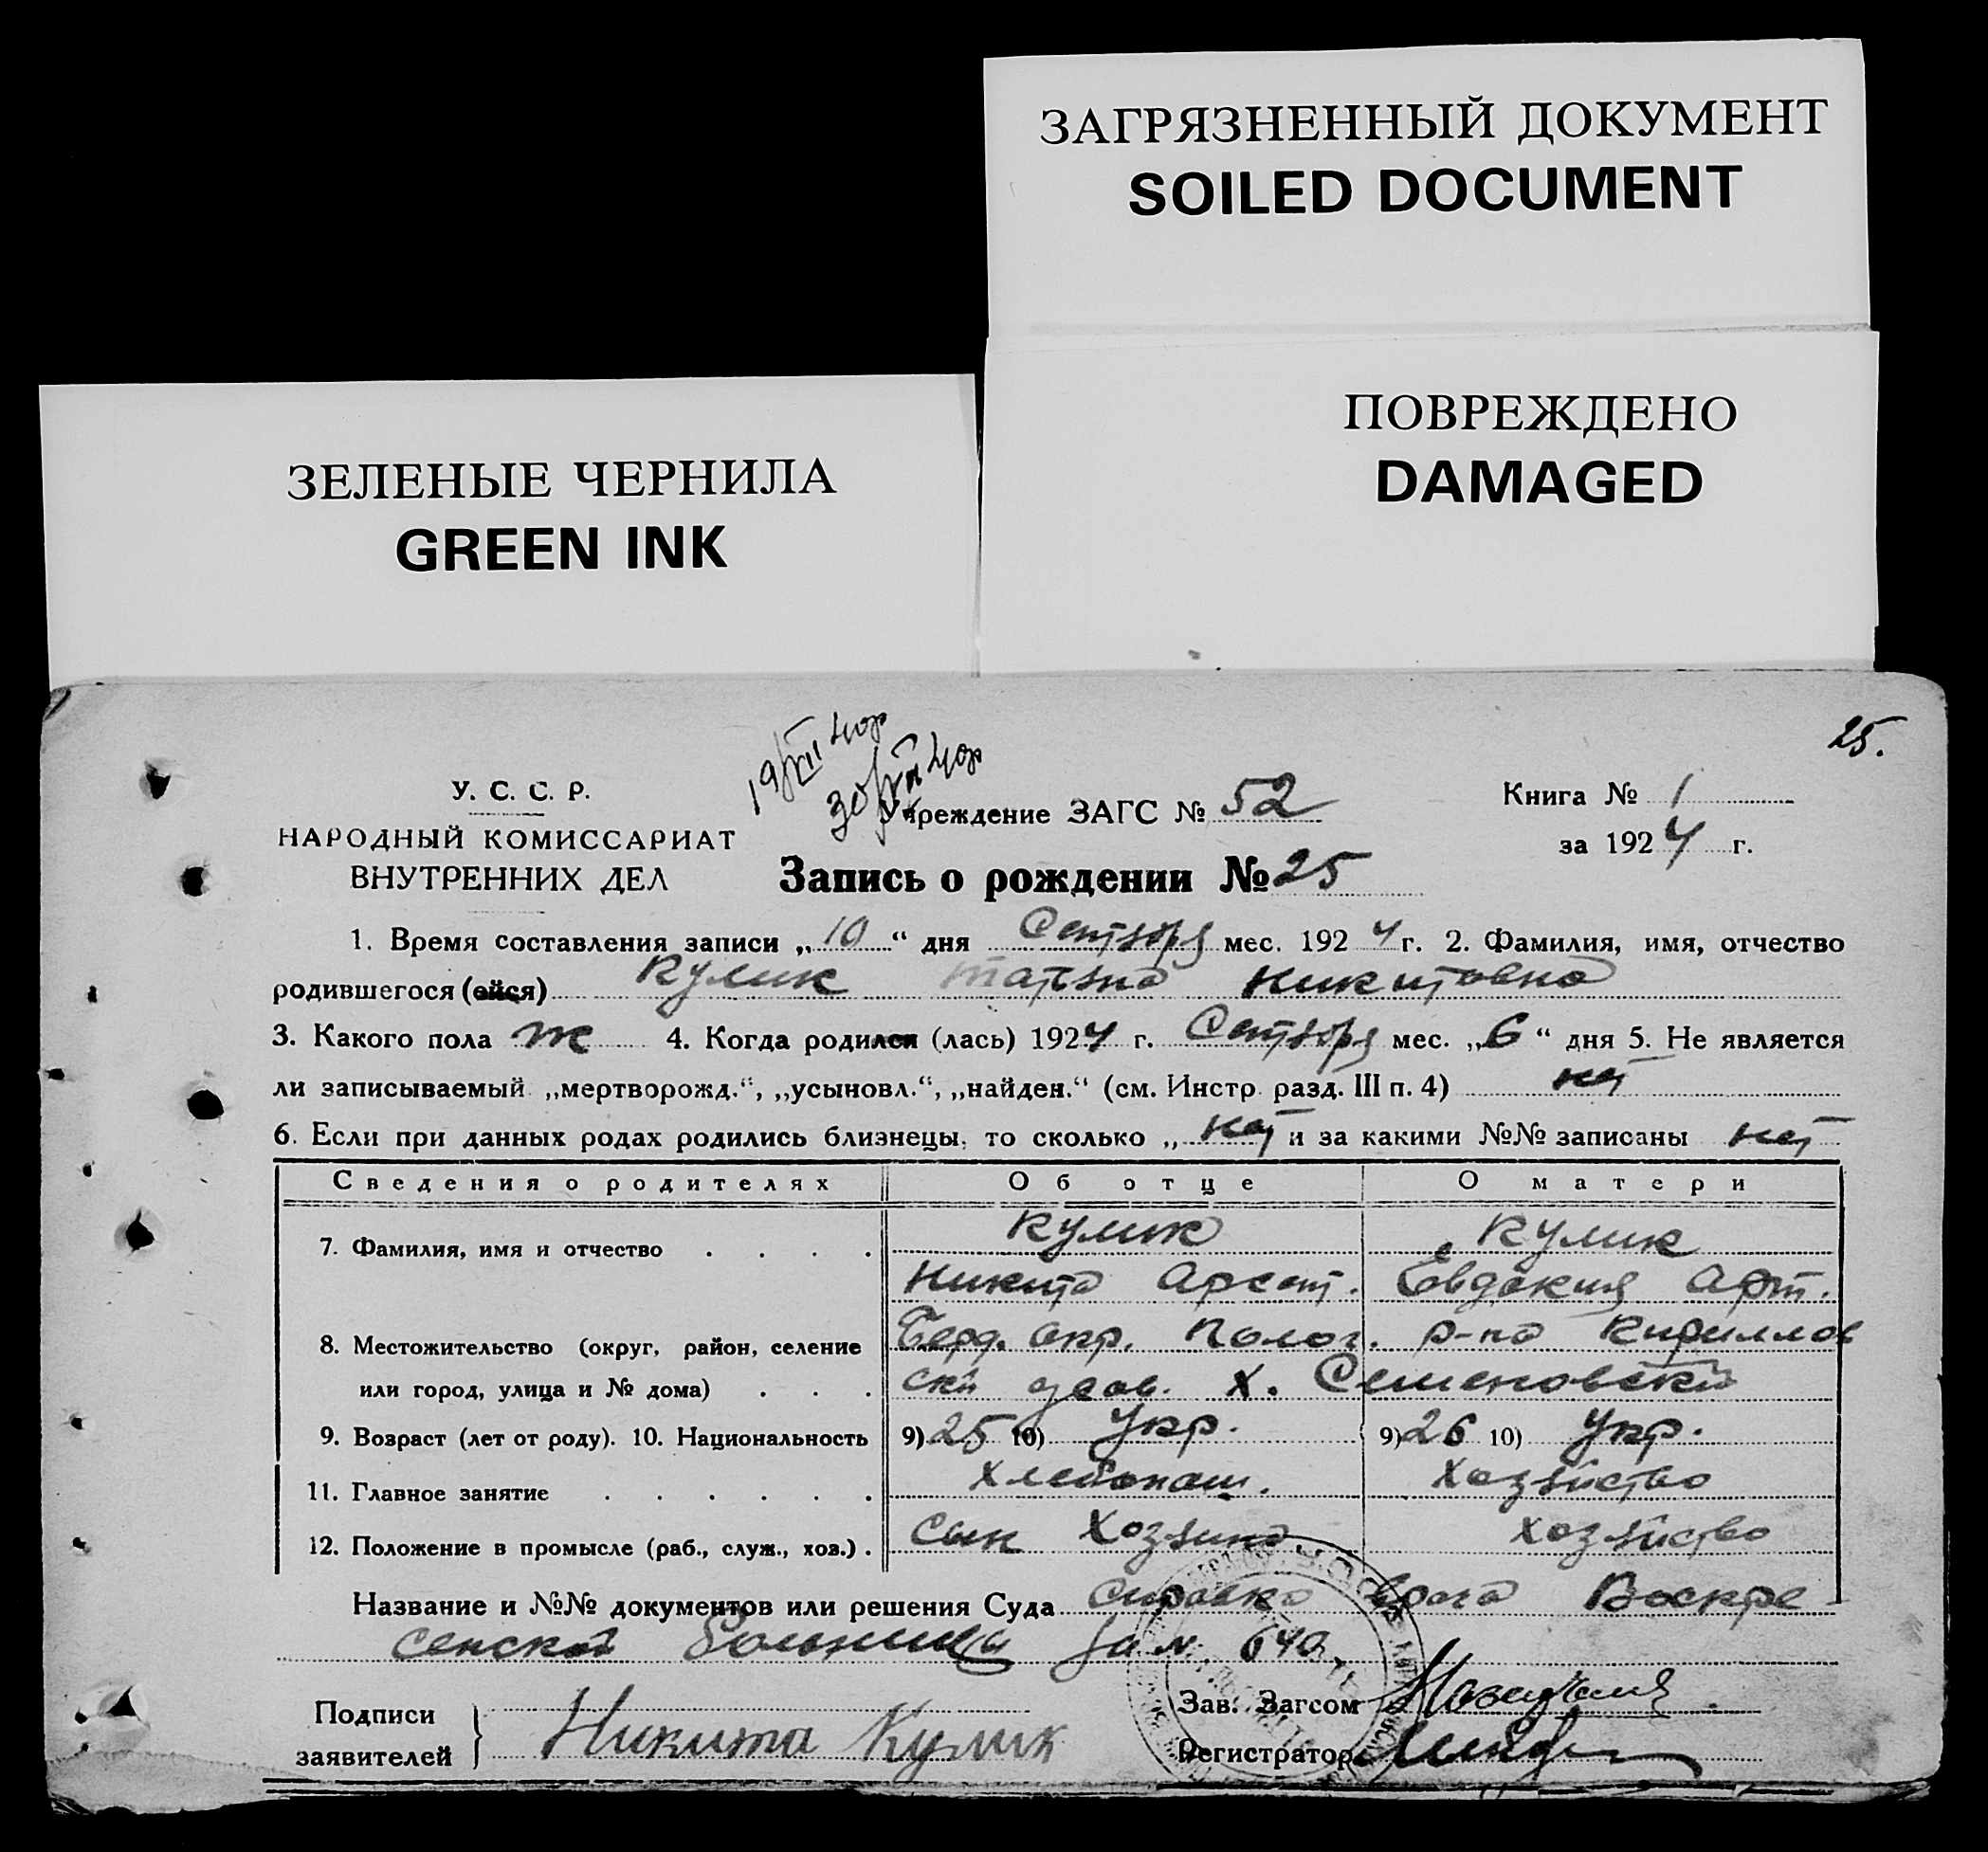 ЗАГРЯЗНЕННЫЙ ДОКУМЕНТ
SOILED DOCUMENT
ПОВРЕЖДЕНО
DAMAGED
ЗЕЛЕНЫЕ ЧЕРНИЛА
GREEN INK
25.
У. С. С. Р.
НАРОДНЫЙ КОМИССАРИАТ
ВНУТРЕННИХ ДЕЛ
Учреждение ЗАГС № 52
Книга № 1
за 1924 г.
Запись о рождении № 25
1. Время составления записи „10“ дня Сентября мес. 1924 г. 2. Фамилия, имя, отчество
родившегося (ейся) Кулик Татьяна Никитовна
3. Какого пола ж 4. Когда родился (лась) 1924 г. Сентября мес. „6“ дня 5. Не является
ли записываемый „мертворожд.“, „усыновл.“, „найден.“ (см. Инстр. разд. III п. 4) нет
6. Если при данных родах родились близнецы, то сколько „ нет и за какими №№ записаны нет
Сведения о родителях Об отце О матери
7. Фамилия, имя и отчество . . . . Кулик Кулик
Никита Арсент. Евдокия Арт.
8. Местожительство (округ, район, селение Берд. окр. Полог. р-на Кириллов
или город, улица и № дома) . . . ски х. Семеновский
9. Возраст (лет от роду). 10. Национальность 9) 25 10) Укр. 9) 26 10) Укр.
11. Главное занятие . . . . . . Хлебопаш. Хозяйство
12. Положение в промысле (раб., служ., хоз.) . Сын Хозяина хозяйство
Название и №№ документов или решения Суда Справка врача Воскре-
сенской больницы за № 640
Подписи
заявителей } Никита Кулик
Зав. Загсом
Регистратор